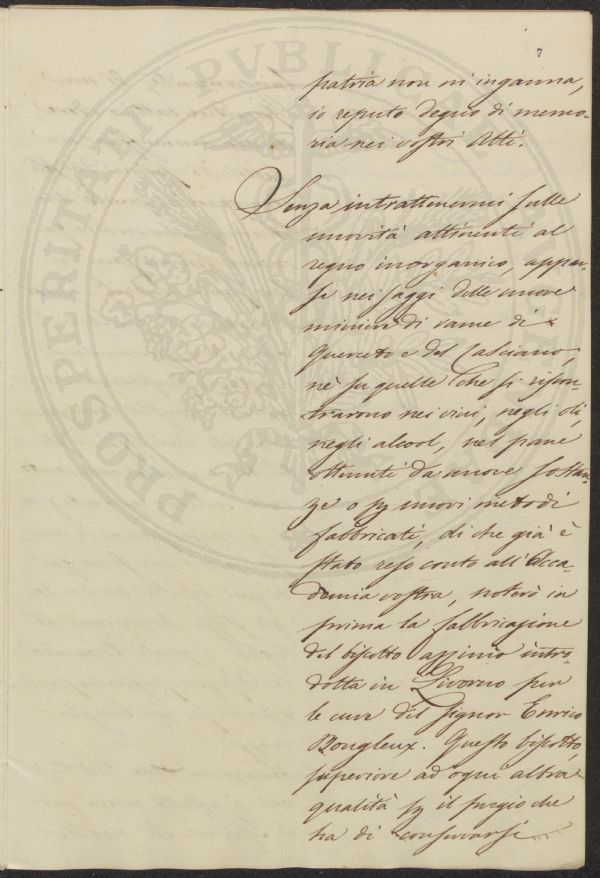 7
patria non mi inganna,
io reputo degno di memo-
ria nei vostri Atti.
Senza intrattenervi sulle
novità attinenti al
regno inorganico, appar-
se nei saggi delle nuove
miniere di rame di
Querceto e del Casciano,
nè su quelle che si riscon-
trarono nei vini, negli olj,
negli alcool, nel pane
ottenuti da nuove sostan-
ze o per nuovi metodi
fabbricati, di che già è
stato reso conto all'Acca-
demia vostra, noterò in
prima la fabbricazione
del biscotto azzimo intro-
dotta in Livorno per
le cure del Signor Enrico
Bougleux. Questo biscotto,
superiore ad ogni altra
qualità per il pregio che
ha di conservarsi
PROSPERITATI PVBLICAE